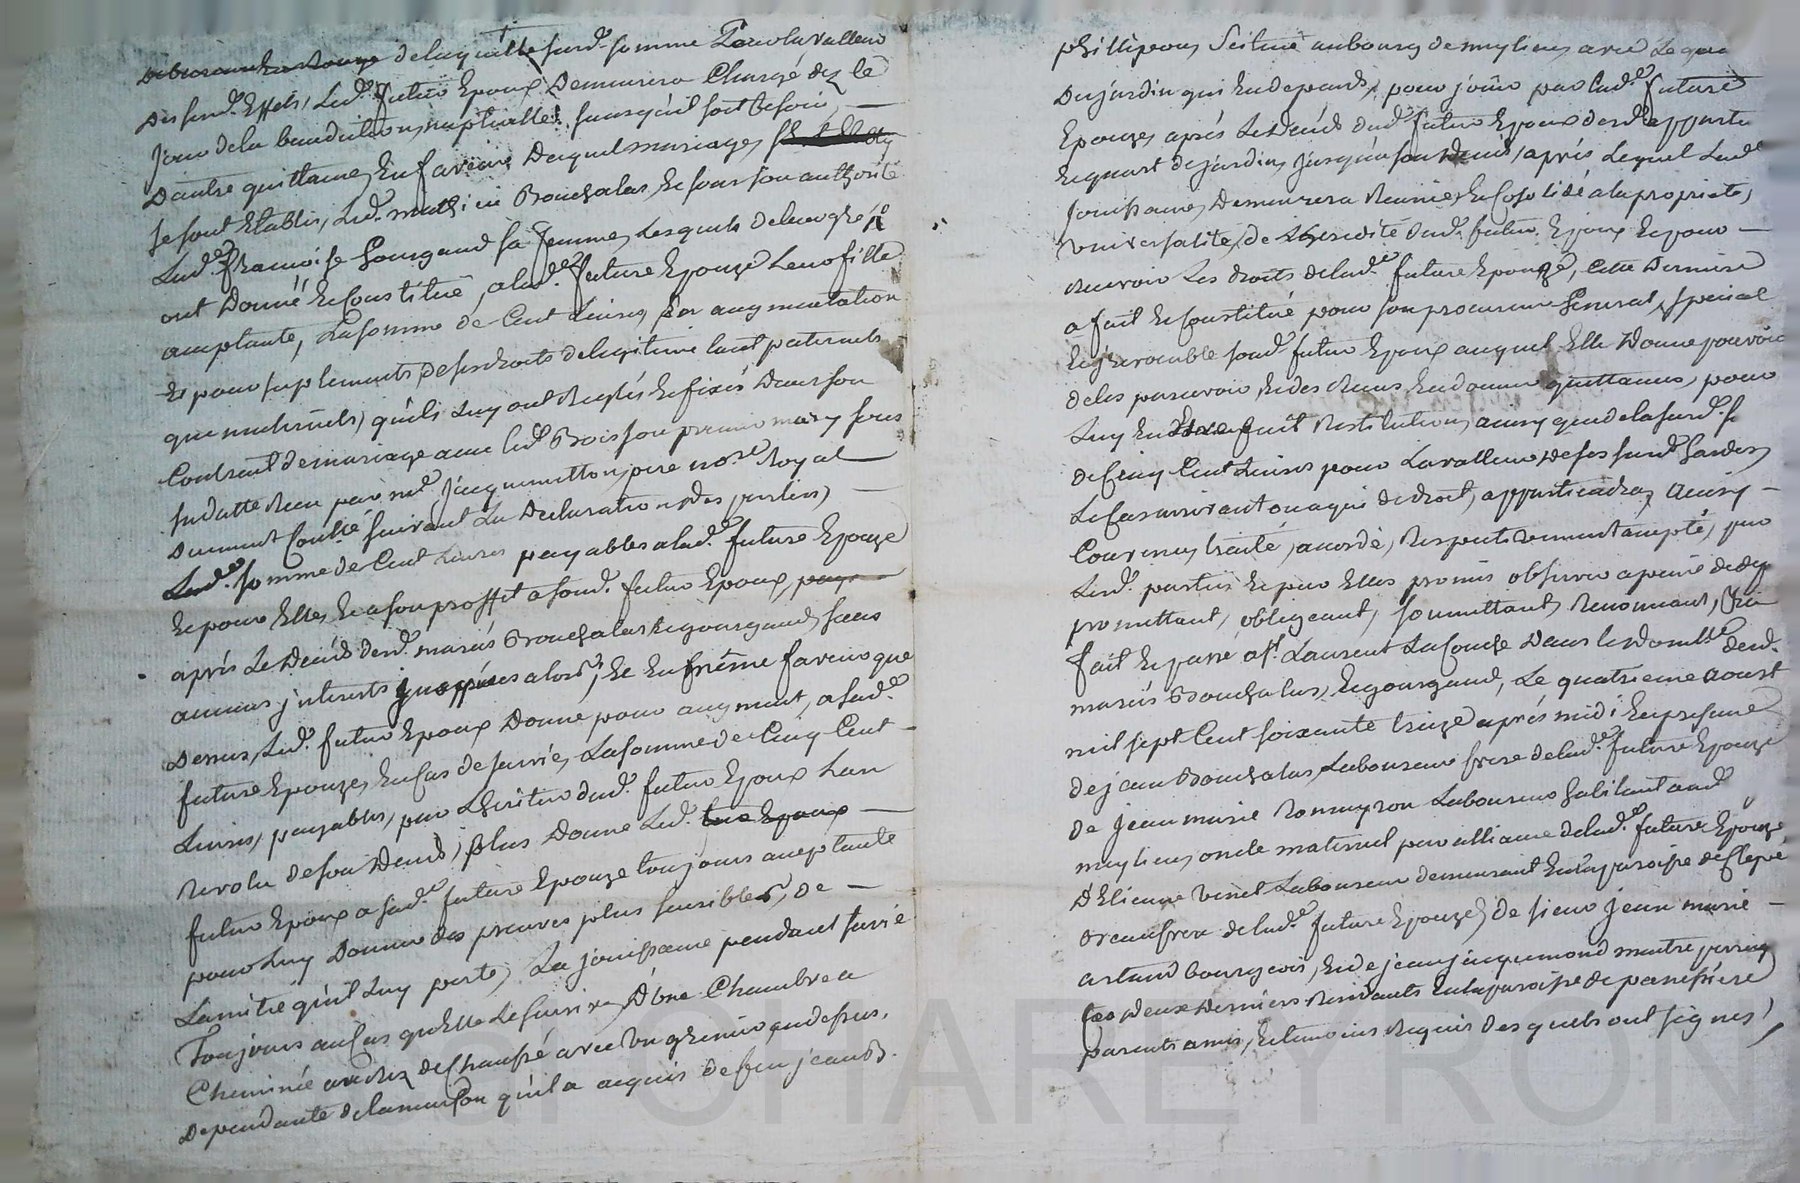 de laquelle susd.e somme pour la valleur
des susd. Effets, led. futur Epoux Demeurera Chargé dez le
jour de la benediction nuptialle, sans qu'il soit besoin
Dautre quittance, En faveur Duquel mariage
se sont Etablis, led. mathieu Bouchalas, & sous son authorité
lad.e françoise Gourgaud sa femme, lesquels de leur gré
ont Donné & Constitué, a lad.e future Epouze leur fille
aceptante, la somme de Cent Livres, par augmentation
et pour suplements de ses droits de legitime tant paternels
que maternels, qu'ils luy ont Reglés & fixés Dans son
Contract de mariage avec led. Boisson premier mary sous
sa datte Reçu par me Jacquemetton pere no.re Royal
Duement Conllé suivant la Declaration des parties,
Lad.e somme de Cent Livres payables a lad.e future Epouze
& pour Elle, & a son proffit a sond. futur Epoux,
aprés le Decés desd. mariés Bouchalas & gourgaud, sans
aucuns jnterets jusques alors, Et En même faveur que
Dessus, led. futur Epoux Donne pour augment, a sad.e
future Epouze, En Cas de survie, la somme de Cinq Cent
Livres, payables, par L'heritier dud. futur Epoux l'an
Revolu de son Decés, plus Donne led.
futur Epoux a sad.e future Epouze toujours aceptante
pour luy Donner des preuves plus sensibles, de
Lamitié qu'il luy porte, La jouissance pendant sa vie
Toujours au Cas qu'Elle le survive, D'une Chambre a
Cheminée au Rez de Chaussé avec Un grenier au dessus,
Dependante de la maison qu'il a acquis de feu jean B.
phillipon, Scitué au bourg de meylieu, avec le quart
Du jardin qui En depend, pour joüir par lad.e future
Epouze, aprés le Decés dud. futur Epoux desd. appartements
& quart de jardin, jusqu'a son Decés, aprés lequel lad.
jouissance, Demeurera Reunie & Consolidé a la proprieté,
Universalité, de L'heredité dud. futur Epoux & pour
Recevoir les droits de lad.e future Epouze, Cette Derniere
a fait & Constitué pour son procureur General, special
& jrrevocable sond. futur Epoux auquel Elle Donne pouvoir
de les percevoir, & des Reçus En donner quittances, pour
Luy En Etre fait Restitution, ainsy que de la susd.
de Cinq Cent Livres pour La valleur de ses susd. hardes,
Le Cas arrivant ou a qui de droit, appartiendra, Ainsy
Convenu, traité, acordé, Respectivement acepté, par
Lesd. parties & par Elles promis observer a peine de dep.
promettant, obligeant, soumettant, Renonçant,
fait & passé a St. Laurent la Conche Dans le Domille desd.
mariés Bouchalas, & gourgaud, le quatrieme aoust
mil sept Cent soixante treize aprés midi En presence
de jean Bouchalas, Laboureur frere de lad.e future Epouze
de Jean marie Romeyron Laboureur habitant aud.
meylieu, oncle maternel par alliance de lad.e future Epouze
D'Etienne Vinet Laboureur demeurant En la paroisse de Clepé
Beaufrere de lad.e future Epouze, de sieur Jean marie
artaud bourgeois, & de jean jacquemond maitre
les deux Derniers Residants En la paroisse de panissiere
parents amis, & temoins Requis Desquels ont signés,
© P CHAREYRON